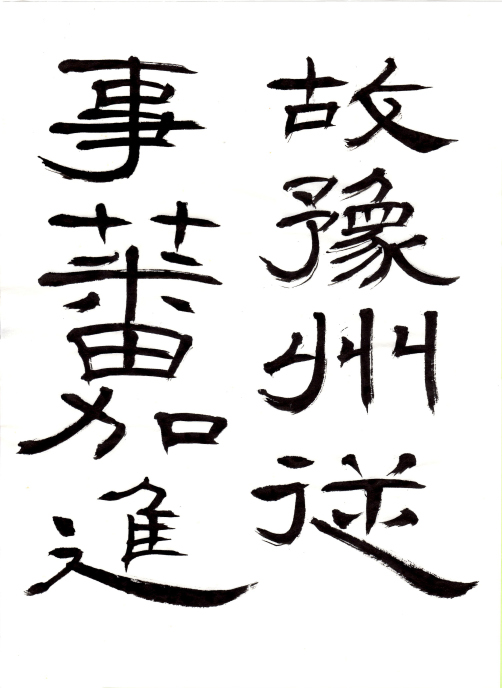 故豫州従
事蕃加進